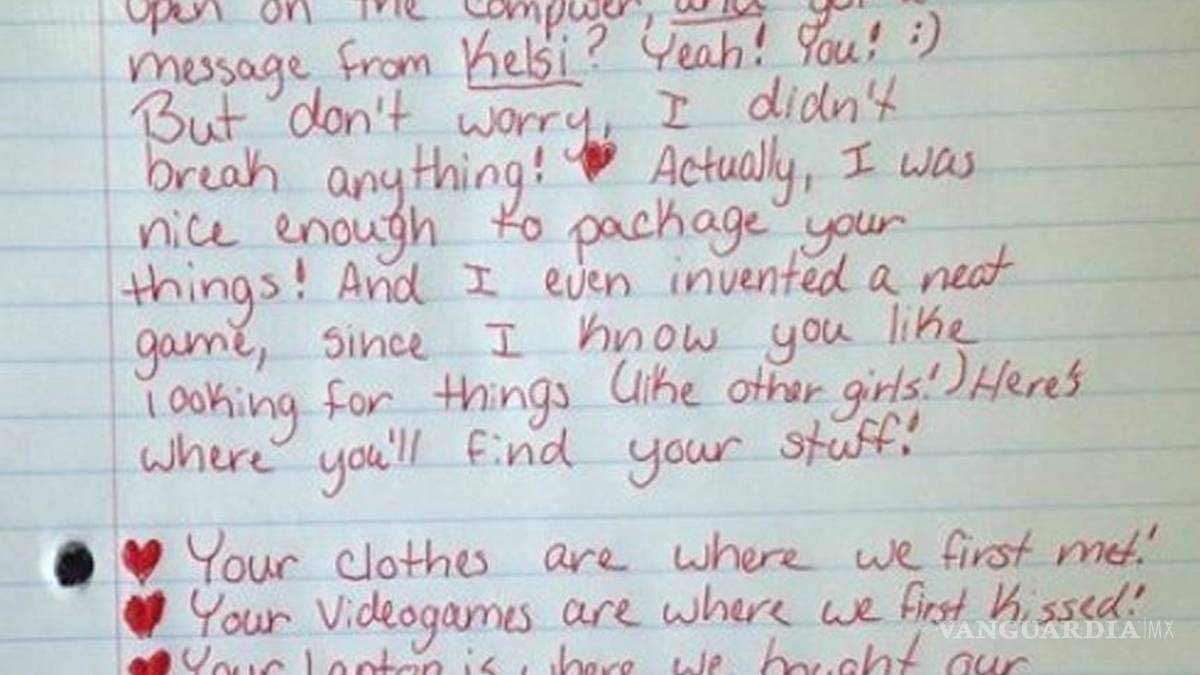 open on the computer, and got a
message from Kelsi? Yeah! You! :)
But don't worry, I didn't
break anything! ♥ Actually, I was
nice enough to package your
things! And I even invented a neat
game, since I know you like
looking for things (like other girls!) Here's
where you'll find your stuff!
♥ Your clothes are where we first met!
♥ Your Videogames are where we first kissed!
VANGUARDIA|MX
♥ Your laptop is where we bought our